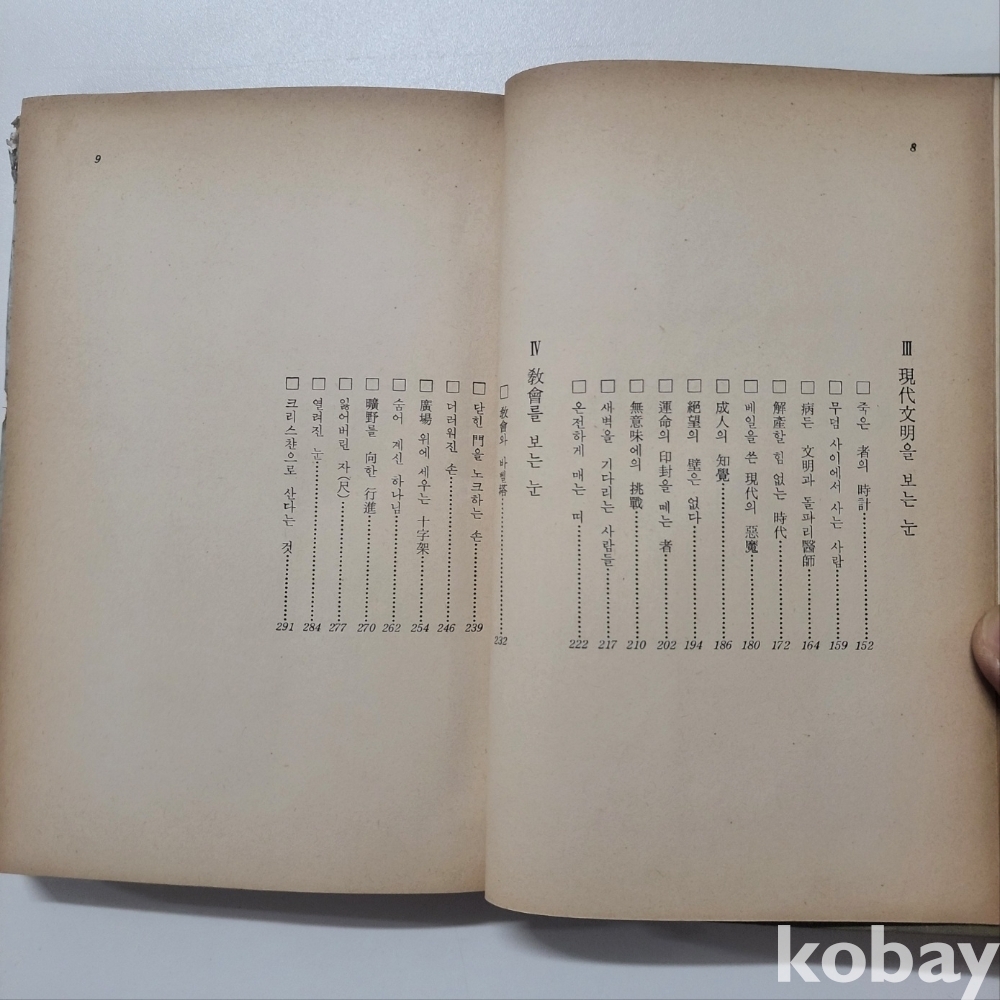 8
Ⅲ 現代文明을 보는 눈
□ 죽은 者의 時計 152
□ 무덤 사이에서 사는 사람 159
□ 病든 文明과 돌파리醫師 164
□ 解產할 힘 없는 時代 172
□ 베일을 쓴 現代의 惡魔 180
□ 成人의 知覺 186
□ 絕望의 壁은 없다 194
□ 運命의 印封을 떼는 者 202
□ 無意味에의 挑戰 210
□ 새벽을 기다리는 사람들 217
□ 온전하게 매는 띠 222
Ⅳ 敎會를 보는 눈
□ 敎會와 바벨塔 232
9
□ 닫힌 門을 노크하는 손 239
□ 더러워진 손 246
□ 廣場 위에 세우는 十字架 254
□ 숨어 계신 하나님 262
□ 曠野를 向한 行進 270
□ 잃어버린 자(尺) 277
□ 열려진 눈 284
□ 크리스챤으로 산다는 것 291
kobay